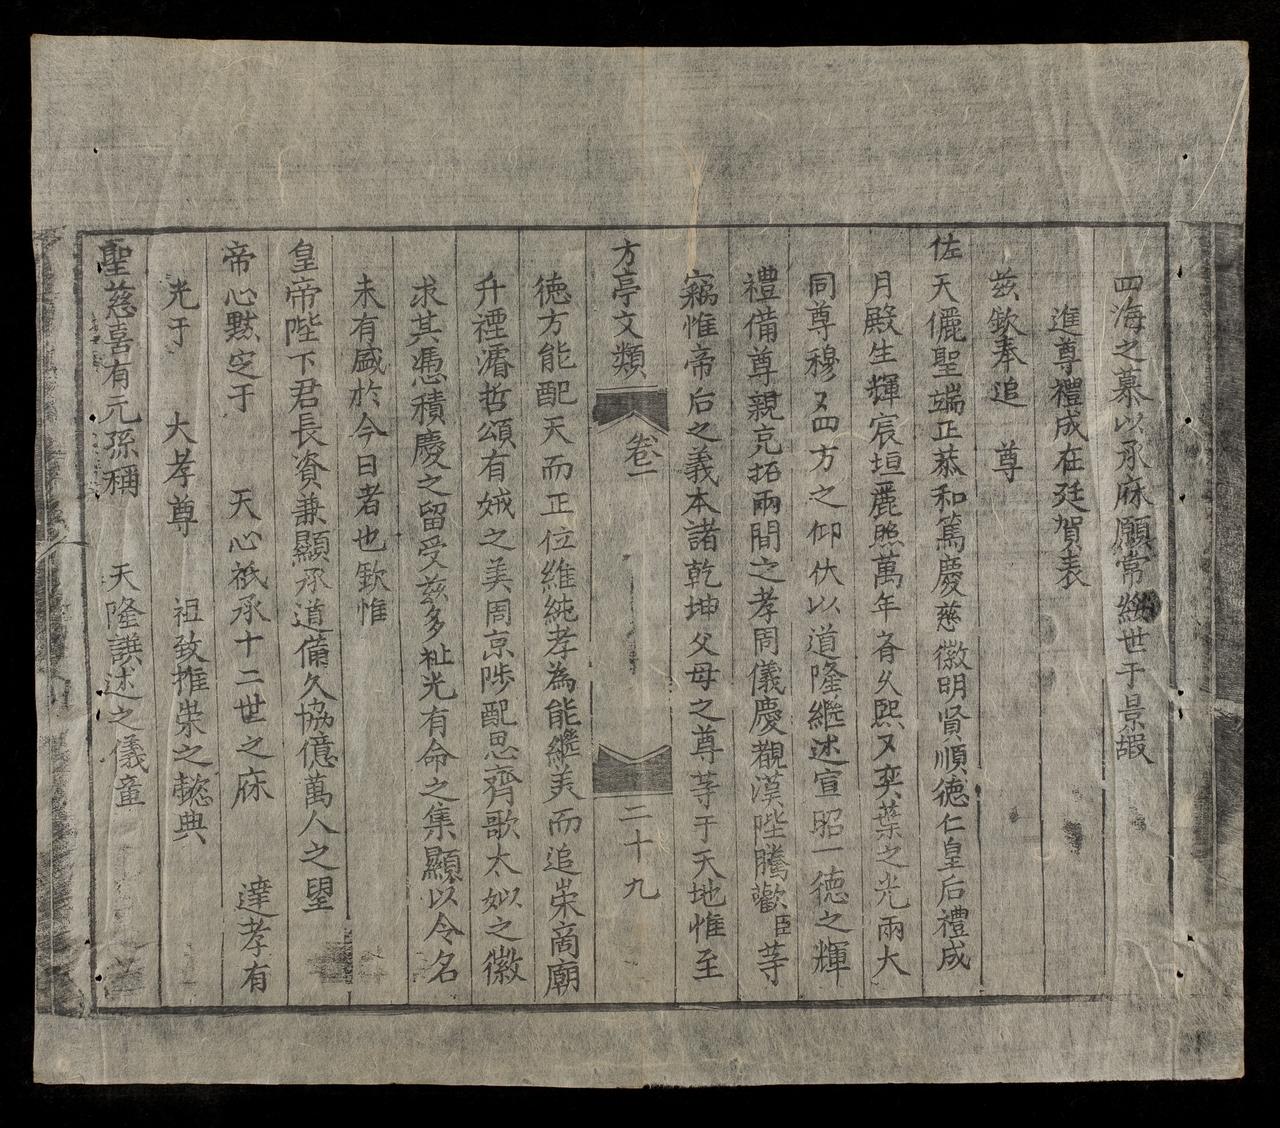 四海之慕以承庥願常綏世于景嘏
進尊禮成在廷賀表
茲欽奉追　尊
佐天儷聖端正恭和篤慶慈徽明賢順徳仁皇后禮成
月殿生輝宸垣麗照萬年斉久熙又奕葉之光兩大
同尊穆又四方之仰伏以道隆繼述宣昭一徳之輝
禮備尊親克拓兩間之孝周儀慶觀漢陛騰歡臣等
竊惟帝后之義本諸乾坤父母之尊等于天地惟至
方亭文類　卷一　二十九
徳方能配天而正位維純孝為能繼美而追崇商廟
升禋濬哲頌有娀之美周京陟配思齊歌太姒之徽
求其憑積慶之留受茲多祉光有命之集顯以令名
未有盛於今日者也欽惟
皇帝陛下君長資兼顯承道備久協億萬人之望
帝心默定于　天心祇承十二世之庥　達孝有
光于　大孝尊　祖致推崇之懿典
聖慈喜有元孫稱　天隆譔述之儀章